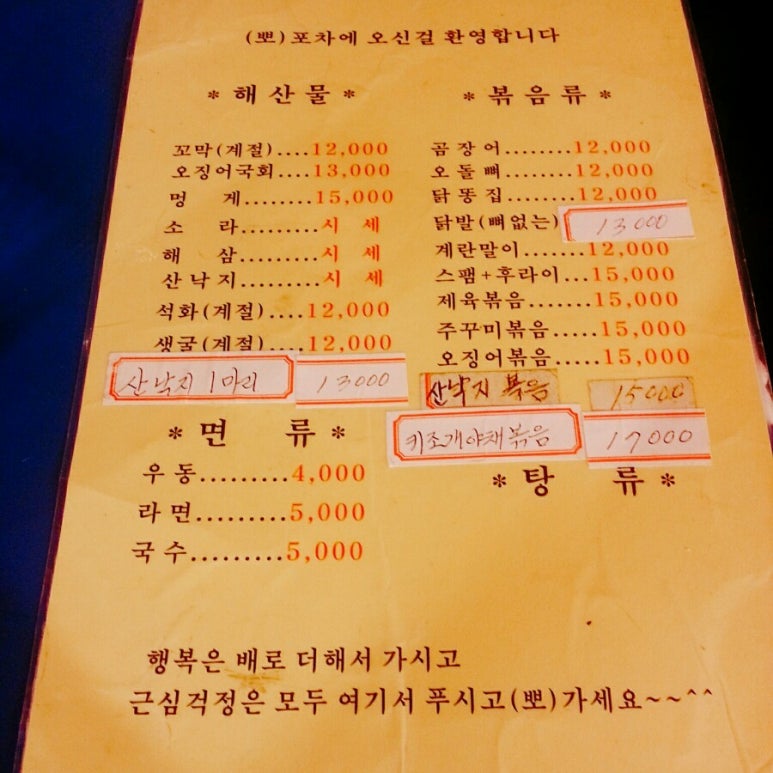 (뽀) 포차에 오신걸 환영합니다
* 해 산 물 *
꼬막(계절)....12,000
오징어국회....13,000
멍 게........15,000
소 라.........시 세
해 삼.........시 세
산 낙 지........시 세
석화(계절)....12,000
생굴(계절)....12,000
산낙지 1마리 13000
* 면 류 *
우 동.........4,000
라 면.........5,000
국 수.........5,000
* 볶 음 류 *
곰 장 어........12,000
오 돌 뼈........12,000
닭 똥 집........12,000
닭발(뼈없는) 13000
계란말이.......12,000
스팸+후라이...15,000
제육볶음.......15,000
주꾸미볶음.....15,000
오징어볶음.....15,000
산낙지 볶음 15000
키조개야채볶음 17000
* 탕 류 *
행복은 배로 더해서 가시고
근심걱정은 모두 여기서 푸시고(뽀)가세요~~^^